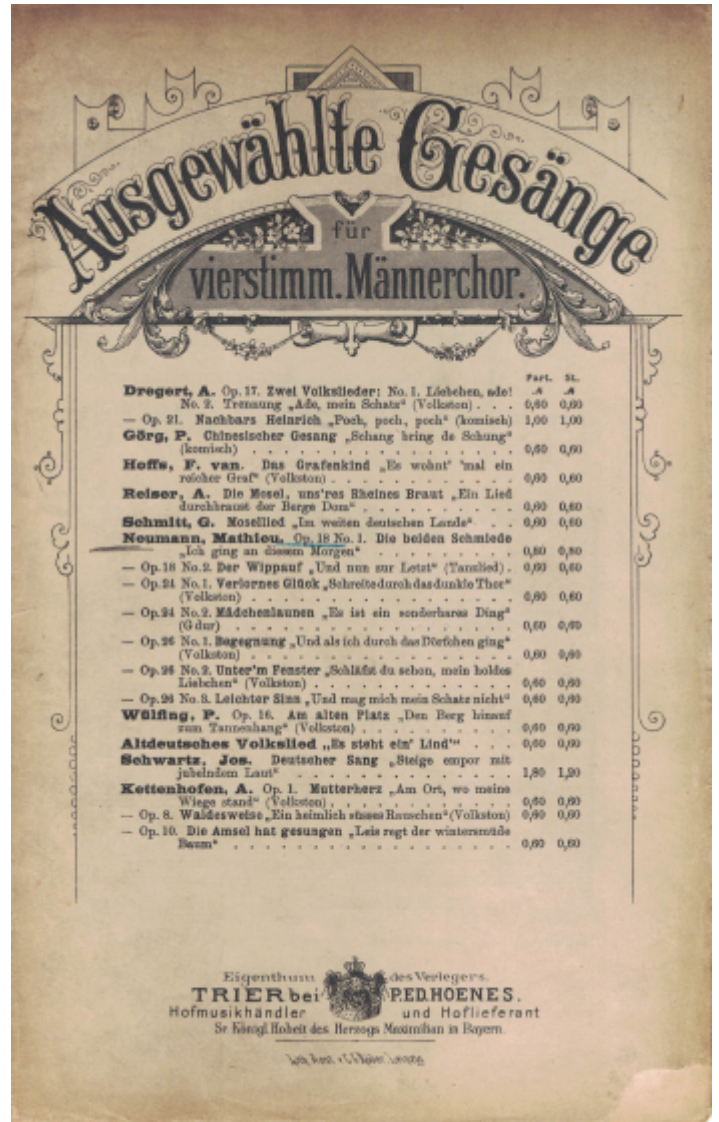 Ausgewählte Gesänge
für
vierstimm. Männerchor.
Part. St.
Dregert, A. Op. 17. Zwei Volkslieder: No. 1. Liebchen, ade!
No. 2. Trennung „Ade, mein Schatz“ (Volkston) . . . 0,60 0,60
— Op. 21. Nachbars Heinrich „Poch, poch, poch“ (komisch) 1,00 1,00
Görg, P. Chinesischer Gesang „Schang bring de Schung“
(komisch) . . . . . . . . . . . . . 0,60 0,60
Hoffs, F. van. Das Grafenkind „Es wohnt' 'mal ein
reicher Graf“ (Volkston) . . . . . . . . . 0,60 0,60
Reiser, A. Die Mosel, uns'res Rheines Braut „Ein Lied
durchbraust der Berge Dom“ . . . . . . . . 0,60 0,60
Schmitt, G. Mosellied „Im weiten deutschen Lande“ . . 0,60 0,60
Neumann, Mathieu, Op. 18 No. 1. Die beiden Schmiede
„Ich ging an diesem Morgen“ . . . . . . . . 0,80 0,80
— Op. 18 No. 2. Der Wippauf „Und nun zur Letzt“ (Tanzlied) . 0,60 0,60
— Op. 24 No. 1. Verlornes Glück „Schreite durch das dunkle Thor“
(Volkston) . . . . . . . . . . . . . 0,60 0,60
— Op. 24 No. 2. Mädchenlaunen „Es ist ein sonderbares Ding“
(G dur) . . . . . . . . . . . . . . 0,60 0,60
— Op. 26 No. 1. Begegnung „Und als ich durch das Dörfchen ging“
(Volkston) . . . . . . . . . . . . . 0,60 0,60
— Op. 26 No. 2. Unter'm Fenster „Schläfst du schon, mein holdes
Liebchen“ (Volkston) . . . . . . . . . . 0,60 0,60
— Op. 26 No. 3. Leichter Sinn „Und mag mich mein Schatz nicht“ 0,60 0,60
Wülfing, P. Op. 16. Am alten Platz „Den Berg hinauf
zum Tannenhang“ (Volkston) . . . . . . . . 0,60 0,60
Altdeutsches Volkslied „Es steht ein' Lind'“ . . . 0,60 0,60
Schwartz, Jos. Deutscher Sang „Steige empor mit
jubelndem Laut“ . . . . . . . . . . . 1,80 1,20
Kettenhofen, A. Op. 1. Mutterherz „Am Ort, wo meine
Wiege stand“ (Volkston) . . . . . . . . . 0,60 0,60
— Op. 8. Waldesweise „Ein heimlich süsses Rauschen“ (Volkston) 0,60 0,60
— Op. 10. Die Amsel hat gesungen „Leis regt der wintersmüde
Baum“ . . . . . . . . . . . . . . 0,60 0,60
Eigenthum des Verlegers.
TRIER bei P. ED. HOENES.
Hofmusikhändler und Hoflieferant
Sr Königl. Hoheit des Herzogs Maximilian in Bayern.